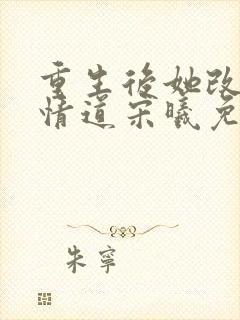 重生後她改
情道宋曦免
朱寧